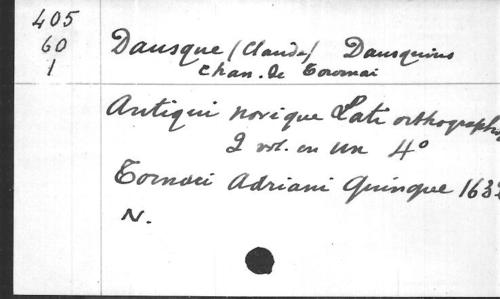 405
60
1
Dausque (Claude) Dausquius
Chan. de Tournai
Antiqui novique Latii orthographi
2 vol. en un 4°
Tornaci Adriani Quinque 1632
N.